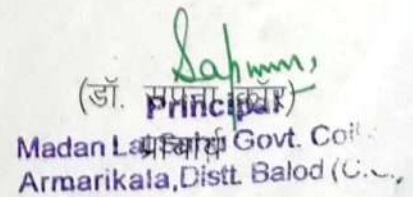 (डॉ.
Principal
प्राचार्य
Madan La Govt. Col
Armarikala, Distt. Balod (C.